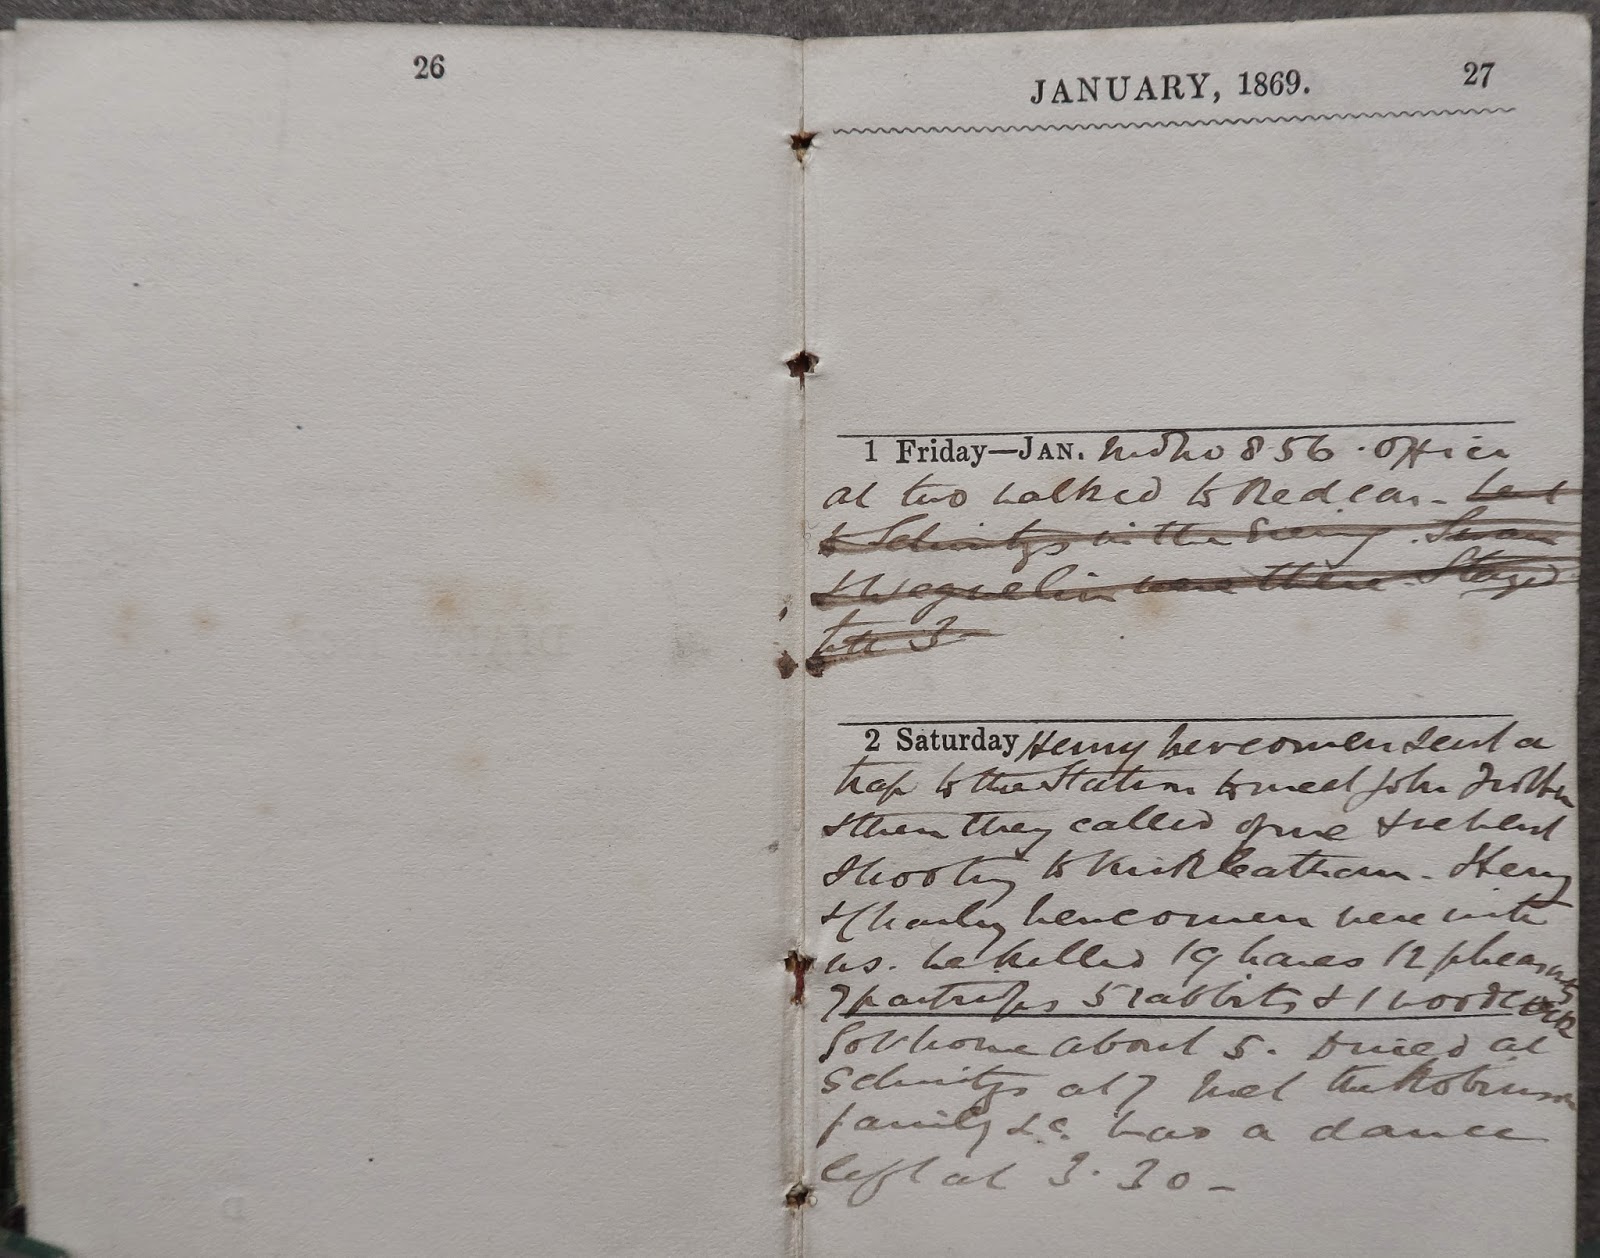 26
JANUARY, 1869. 27
1 Friday—JAN. Mdbro 8 56. Office
at two walked to Redcar - Went
to Schmitzs in the Evening. Swan
& Wequelin were there. Stayed
till 3 -
2 Saturday Henry Newcomen sent a
trap to the Station to meet John Trotter
& then they called for me & we went
shooting to Kirkleatham - Henry
& Charley Newcomen were with
us. We killed 19 hares 12 pheasants
7 partridges 5 rabbits & 1 woodcock
Got home about 5. Dined at
Schmitzs at 7 Met the Robinson
family &c. Had a dance
left at 3.30 -